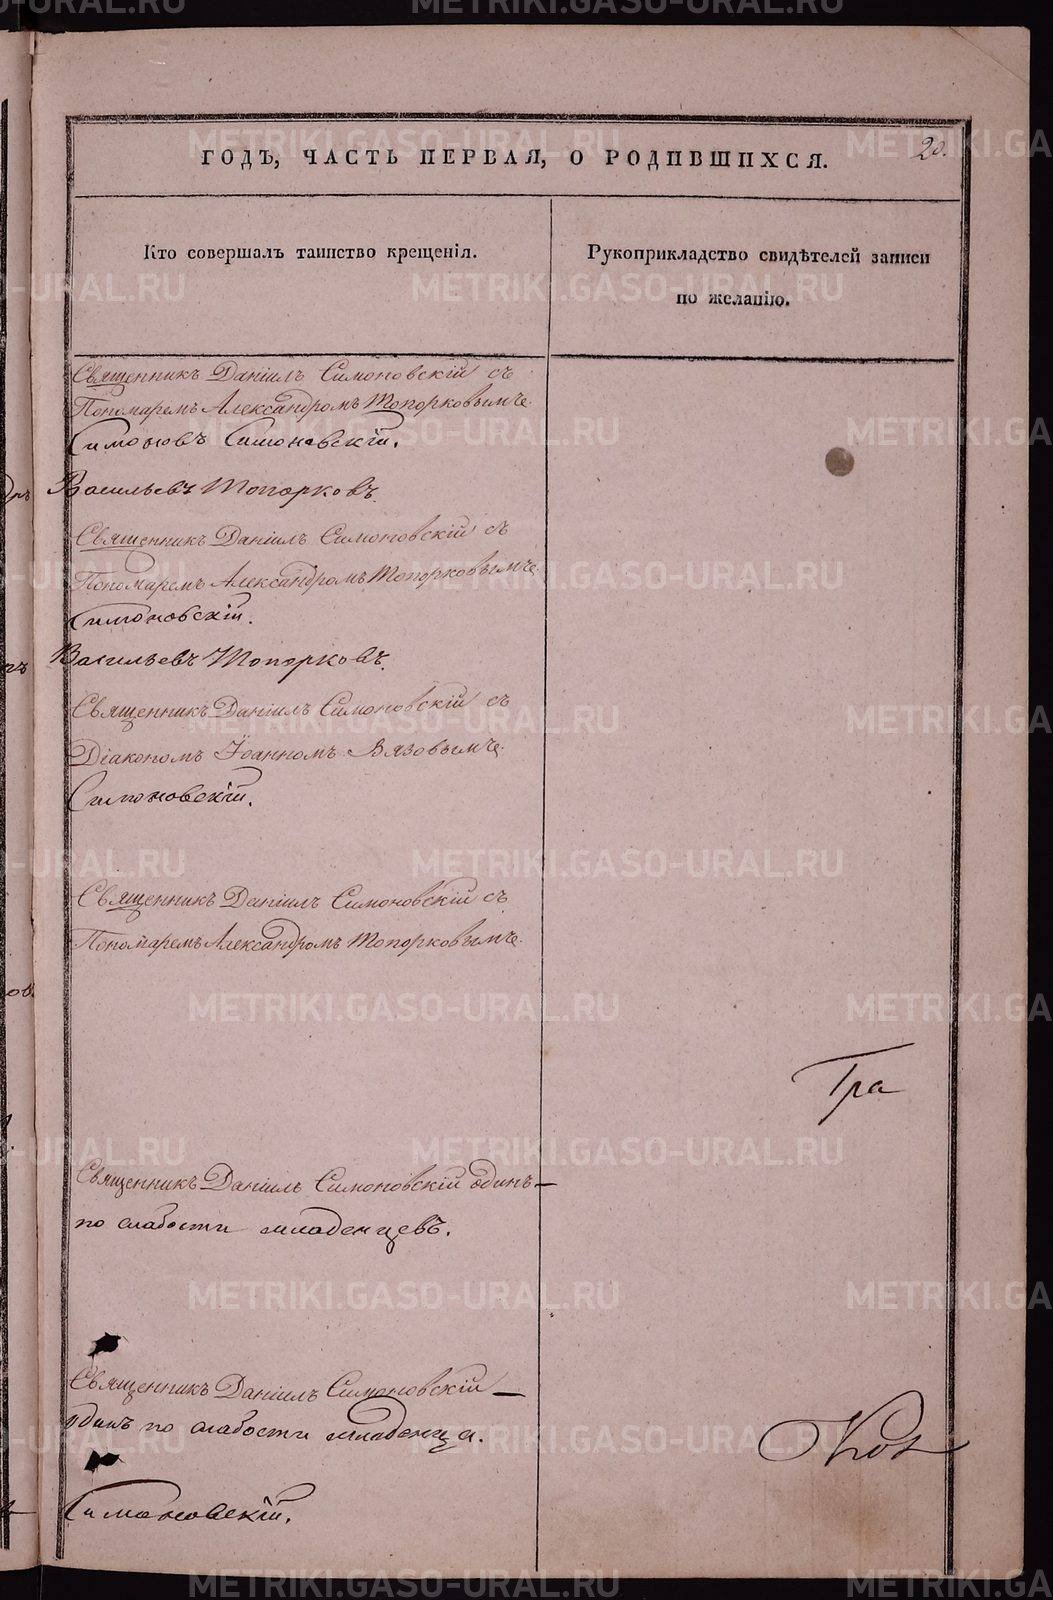 ГОДЪ, ЧАСТЬ ПЕРВАЯ, О РОДИВШИХСЯ.
20.
Кто совершалъ таинство крещенія.
Рукоприкладство свидѣтелей записи
по желанію.
Священникъ Даніилъ Симоновскій съ
Пономаремъ Александромъ Топорковымъ
Симоновскій.
Васильевъ Топорковъ.
Священникъ Даніилъ Симоновскій съ
Пономаремъ Александромъ Топорковымъ
Симоновскій.
Васильевъ Топорковъ.
Священникъ Даніилъ Симоновскій съ
Діакономъ Іоанномъ Вязовымъ
Симоновскій.
Священникъ Даніилъ Симоновскій съ
Пономаремъ Александромъ Топорковымъ
Гра
Священникъ Даніилъ Симоновскій одинъ
по слабости младенцевъ.
Священникъ Даніилъ Симоновскій
одинъ по слабости младенца.
Симоновскій.
METRIKI.GASO-URAL.RU